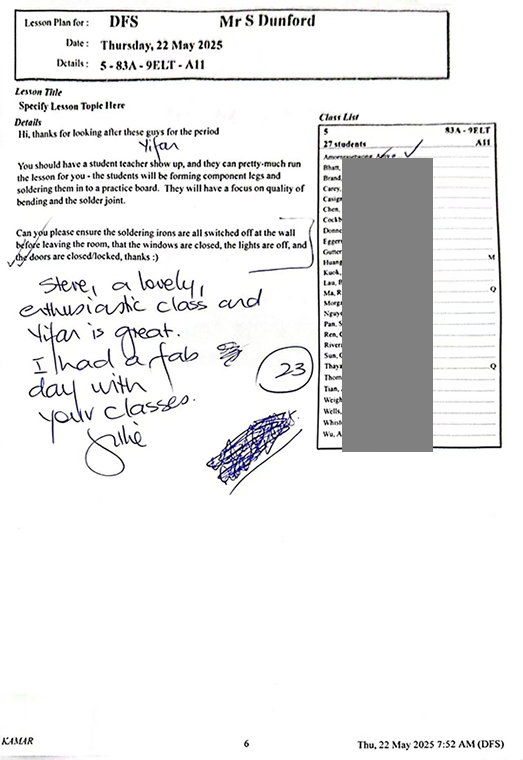 Lesson Plan for : DFS Mr S Dunford
Date : Thursday, 22 May 2025
Details : 5 - 83A - 9ELT - A11
Lesson Title
Specify Lesson Topic Here
Details
Hi, thanks for looking after these guys for the period
Yifan
You should have a student teacher show up, and they can pretty-much run
the lesson for you - the students will be forming component legs and
soldering them in to a practice board. They will have a focus on quality of
bending and the solder joint.
Can you please ensure the soldering irons are all switched off at the wall
before leaving the room, that the windows are closed, the lights are off, and
the doors are closed/locked, thanks :)
Steve, a lovely,
enthusiastic class and
Yifan is great.
I had a fab
day with
your classes.
Julie
23
Class List
5 83A - 9ELT
27 students A11
Bhatt,
Brand,
Carey,
Casign
Chen,
Cockb
Donne
Egger
Gutter
Huang M
Kuok,
Lau, B
Ma, R Q
Morga
Nguye
Pan, S
Ren, C
Rivera
Sun, C
Thaya Q
Thom
Tian,
Weigh
Wells,
Whist
Wu, A
KAMAR 6 Thu, 22 May 2025 7:52 AM (DFS)